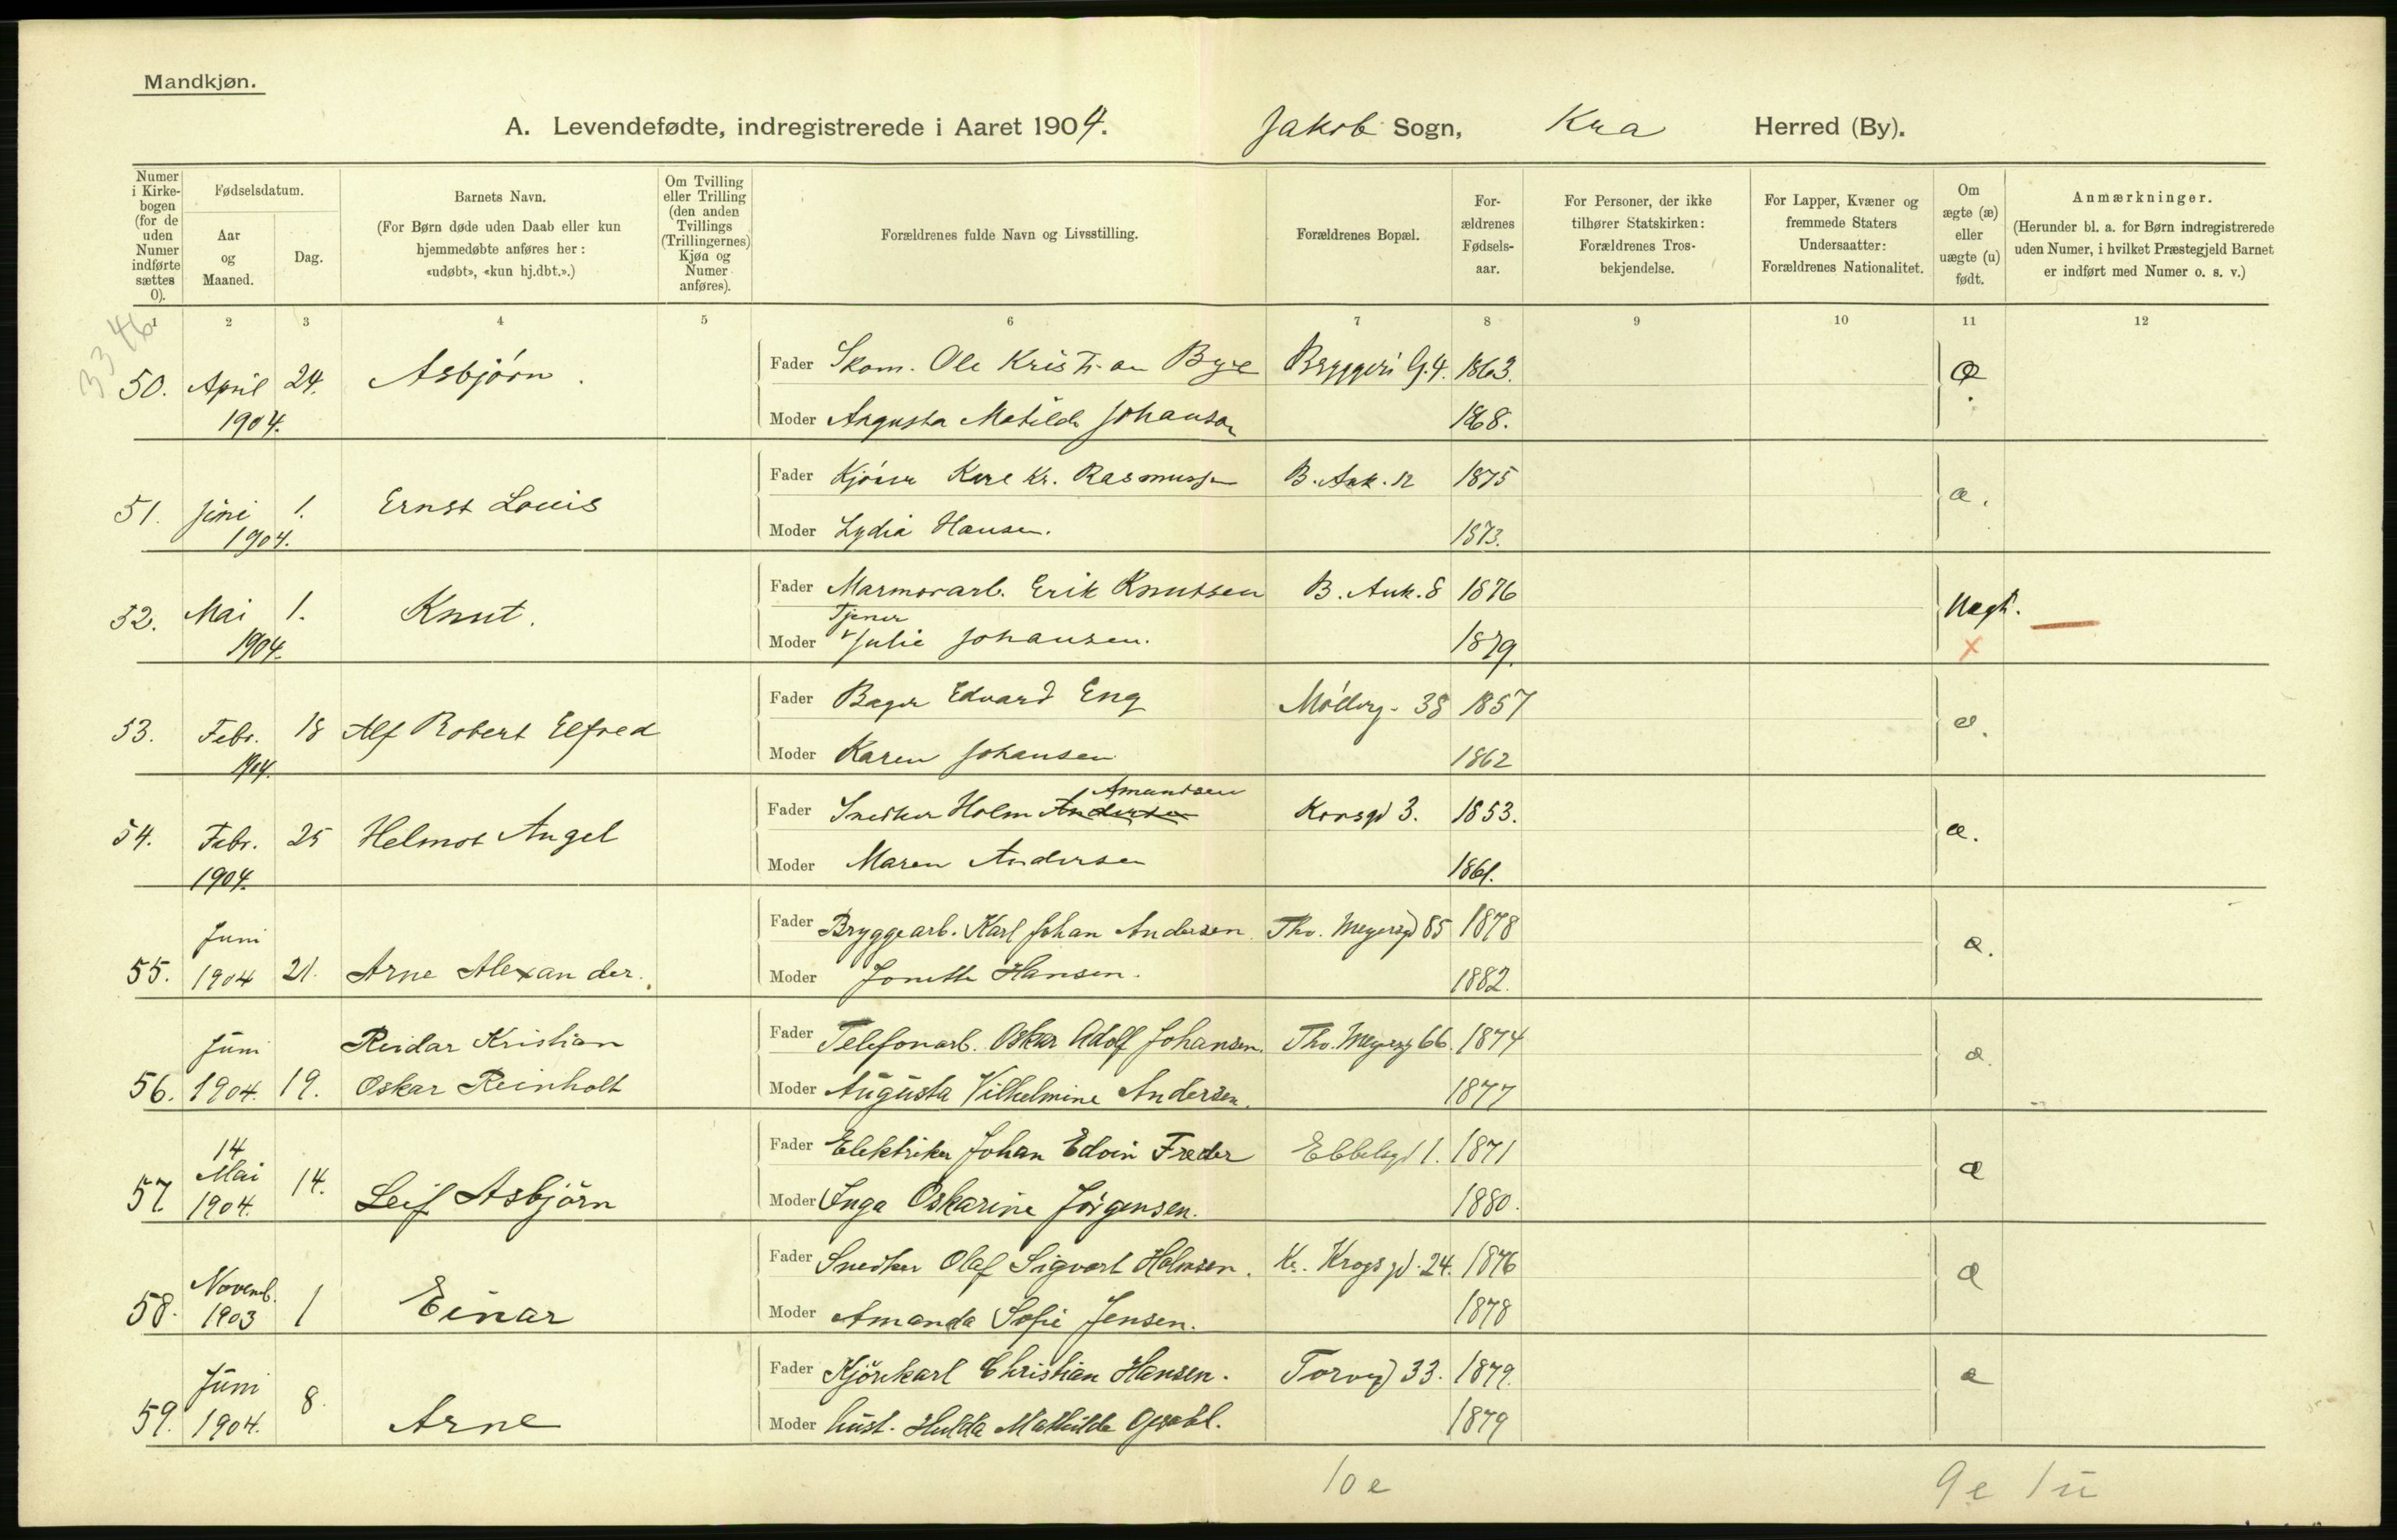 Mandkjøn.
A. Levendefødte, indregistrerede i Aaret 1904. Jakob Sogn, Kra Herred (By).
Numer i Kirkebogen (for de uden Numer indførte sættes 0).
Fødselsdatum.
Aar og Maaned.
Dag.
Barnets Navn.
(For Børn døde uden Daab eller kun hjemmedøbte anføres her: «udøbt», «kun hj.dbt.».)
Om Tvilling eller Trilling (den anden Tvillings (Trillingernes) Kjøn og Numer anføres).
Forældrenes fulde Navn og Livsstilling.
Forældrenes Bopæl.
Forældrenes Fødselsaar.
For Personer, der ikke tilhører Statskirken: Forældrenes Trosbekjendelse.
For Lapper, Kvæner og fremmede Staters Undersaatter: Forældrenes Nationalitet.
Om ægte (æ) eller uægte (u) født.
Anmærkninger.
(Herunder bl. a. for Børn indregistrerede uden Numer, i hvilket Præstegjeld Barnet er indført med Numer o. s. v.)
1 2 3 4 5 6 7 8 9 10 11 12
3346
50. April 1904. 24. Asbjørn. Fader Skom. Ole Kristian Bye Bryggeri G. 4. 1863. æ
Moder Augusta Matilde Johanson 1868.
51. Juni 1904. 1. Ernst Louis Fader Kjører Karl Kr. Rasmussen B. Ank. 12 1875 æ.
Moder Lydia Hansen. 1873.
52. Mai 1904. 1. Knut. Fader Marmorarb. Erik Knutsen B. Ank. 8 1876 Uægt.
Moder Tjener Julie Johansen. 1879. x
53. Febr. 1904. 18 Alf Robert Elfred Fader Bager Edvard Eng Møllerg. 38 1857 æ.
Moder Karen Johansen 1862
54. Febr. 1904. 25 Helmot Angel Fader Snedker Holm Andersen Amundsen Korsgd 3. 1853. æ.
Moder Maren Andersen 1861.
55. Juni 1904 21. Arne Alexander. Fader Bryggearb. Karl Johan Andersen Thv. Meyersgd 85 1878 æ.
Moder Jonette Hansen. 1882.
56. Juni 1904. 19. Reidar Kristian Oskar Reinholt Fader Telefonarb. Oskar Adolf Johansen. Thv. Meyersg 66. 1874 æ.
Moder Augusta Vilhelmine Andersen. 1877
57. 14 Mai 1904. 14. Leif Asbjørn Fader Elektriker Johan Edvin Fræder Ebbelsgd 1. 1871 æ
Moder Inga Oskarine Jørgensen. 1880.
58. Novemb. 1903 1 Einar Fader Snedker Olaf Sigvart Holmsen. Kr. Krogs gd. 24. 1876 æ
Moder Amanda Sofie Jensen. 1878
59. Juni 1904. 8. Arne Fader Kjørekarl Christian Hansen. Torvgd 33. 1879. æ
Moder hust. Hulda Mathilde 1879
10 e 9 e 1 u